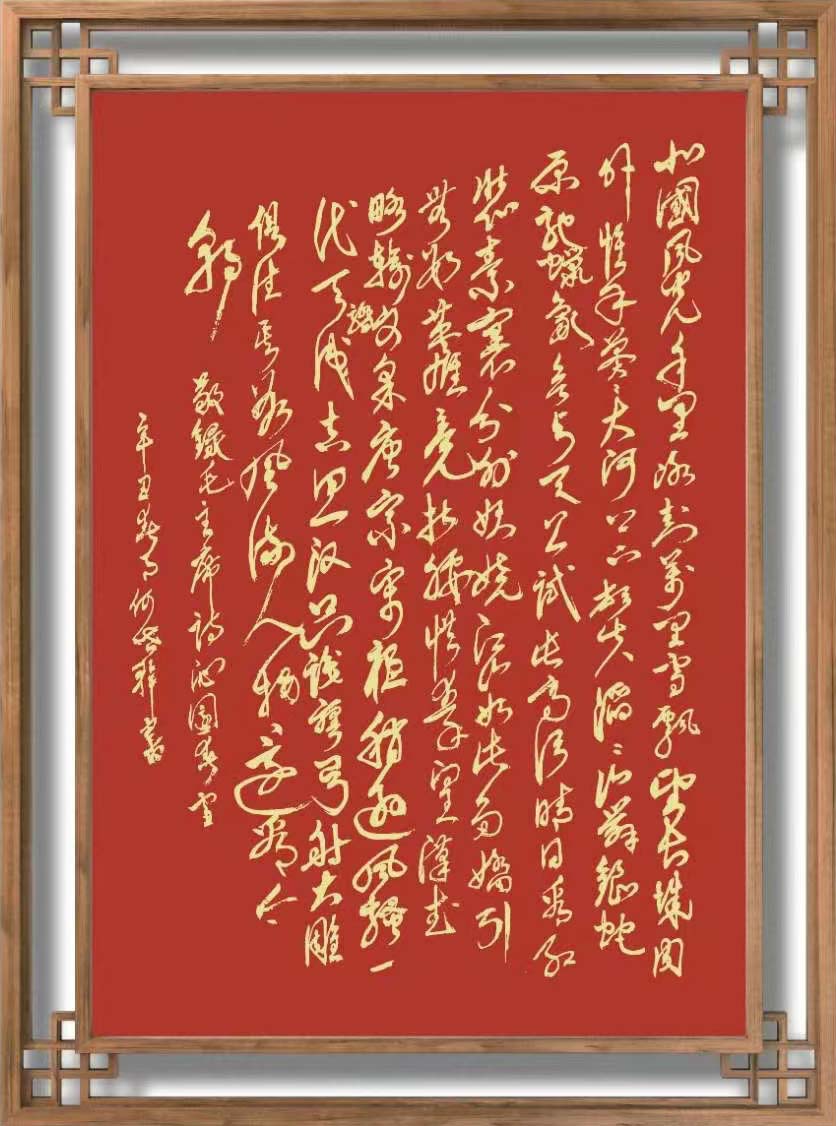 北國風光千里冰封萬里雪飄望長城內
外惟余莽〻大河上下頓失滔〻山舞銀蛇
原馳蠟象欲與天公試比高須晴日看紅
裝素裹分外妖嬈江山如此多嬌引
無數英雄竞折腰惜秦皇漢武
略輸文采唐宗宋祖稍遜風騷一
代天驕成吉思汗只識彎弓射大雕
俱往矣數風流人物还看今
朝
敬錄毛主席詩沁園春雪
辛丑春月何祥書